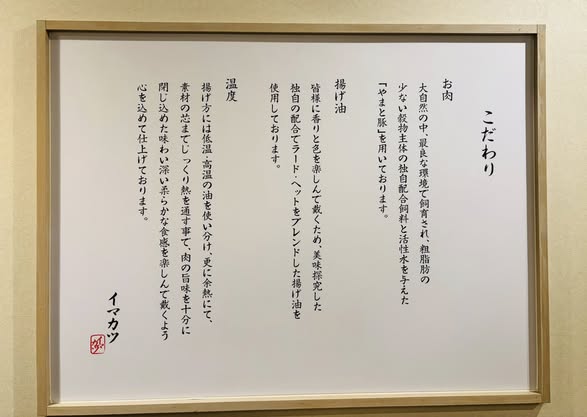 こだわり
お肉
大自然の中、最良な環境で飼育され、粗脂肪の
少ない穀物主体の独自配合飼料と活性水を与えた
「やまと豚」を用いております。
揚げ油
皆様に香りと色を楽しんで戴くため、美味探究した
独自の配合でラード・ヘットをブレンドした揚げ油を
使用しております。
温度
揚げ方には低温・高温の油を使い分け、更に余熱にて、
素材の芯までじっくり熱を通す事で、肉の旨味を十分に
閉じ込めた味わい深い柔らかな食感を楽しんで戴くよう
心を込めて仕上げております。
イマカツ